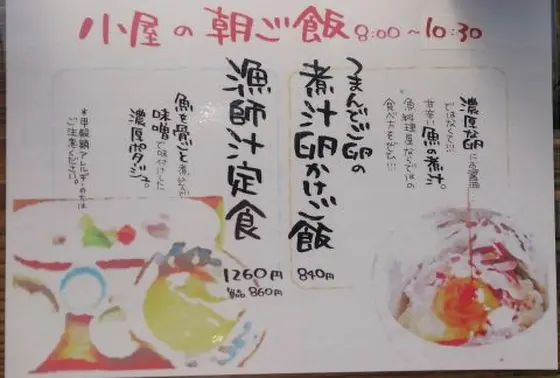 小屋の朝ご飯 8:00～10:30
濃厚な卵にお醤油…
ではなくて!!!
甘辛い魚の煮汁。
魚料理屋ならではの
食べ方をぜひ!!!
つまんでご卵の
煮汁卵かけご飯
840円
漁師汁定食
1260円
単品 860円
魚を骨ごと煮込んで
味噌で味付けした
濃厚ポタージュ。
*甲殻類アレルギーの方は
ご注意ください。